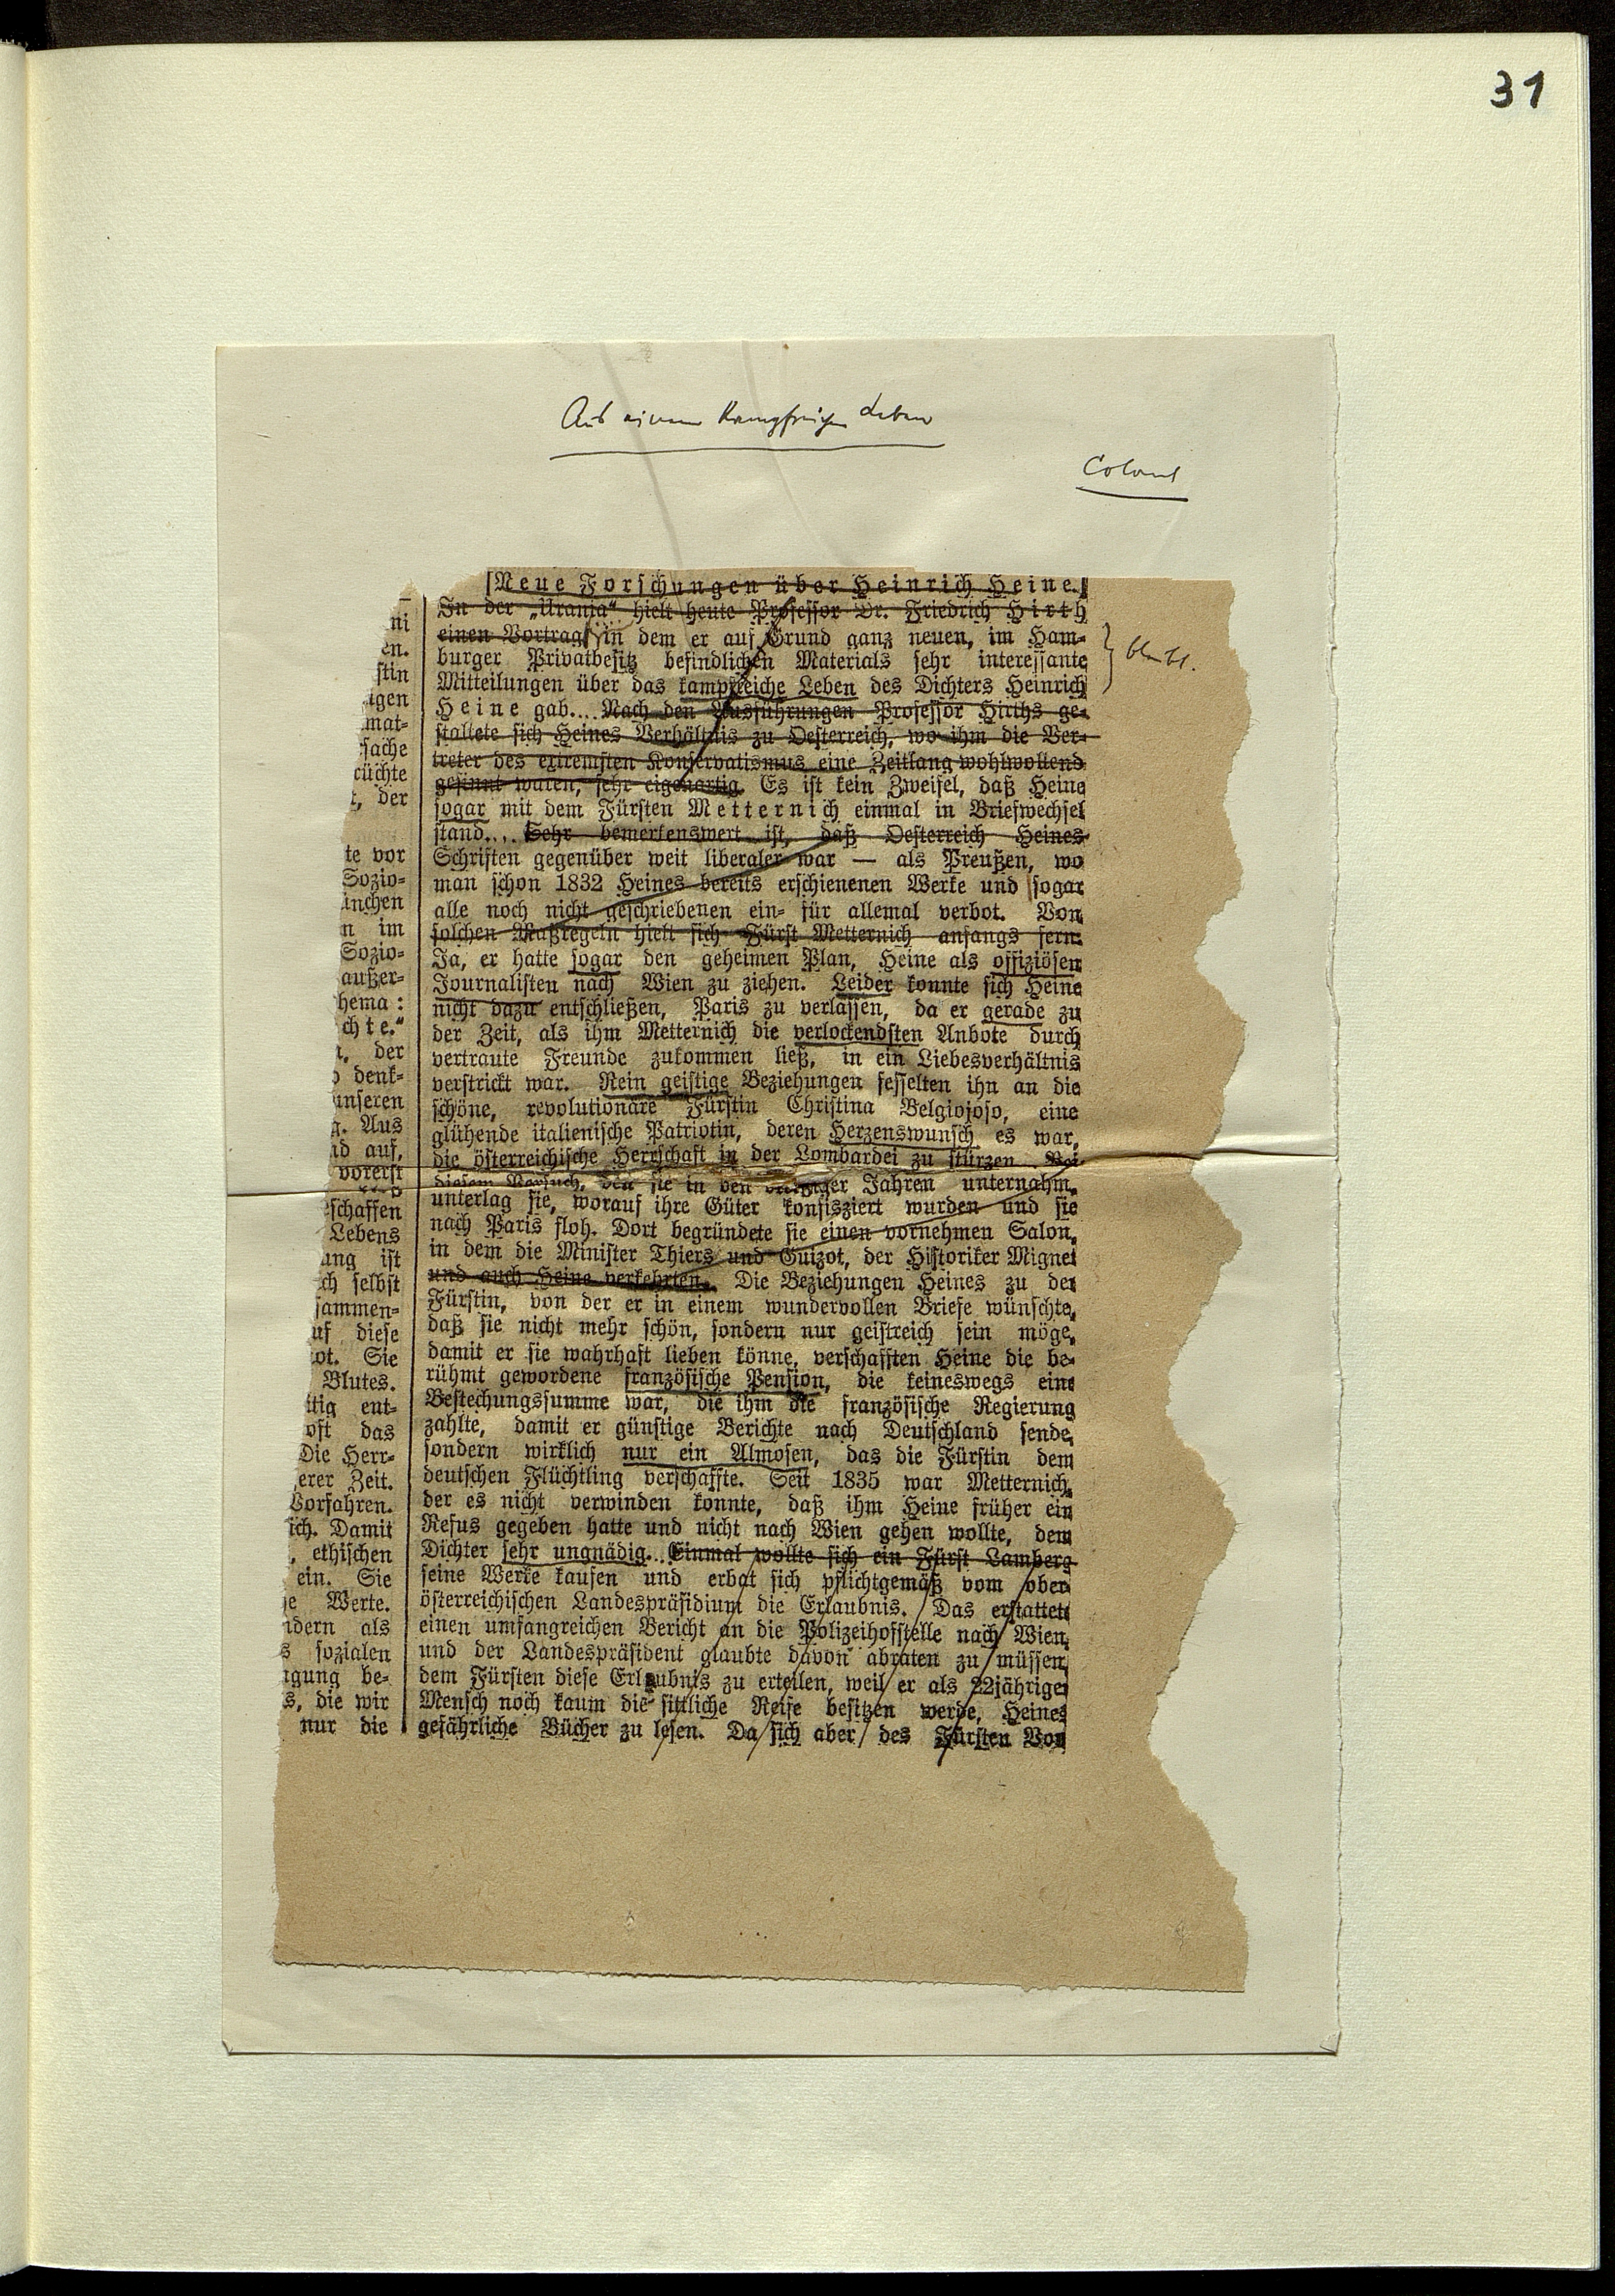 31
Aus einem kampfreichen Leben
Colonel
[Neue Forschungen über Heinrich Heine.]
In der „Urania“ hielt heute Professor Dr. Friedrich Hirth
einen Vortrag, in dem er auf Grund ganz neuen, im Ham-
burger Privatbesitz befindlichen Materials sehr interessante
Mitteilungen über das kampfreiche Leben des Dichters Heinrich
Heine gab... Nach den Ausführungen Professor Hirths ge-
staltete sich Heines Verhältnis zu Oesterreich, wo ihm die Ver-
treter des extremsten Konservatismus eine Zeitlang wohlwollend
gesinnt waren, sehr eigenartig. Es ist kein Zweifel, daß Heine
sogar mit dem Fürsten Metternich einmal in Briefwechsel
stand... Sehr bemerkenswert ist, daß Oesterreich Heines
Schriften gegenüber weit liberaler war — als Preußen, wo
man schon 1832 Heines bereits erschienenen Werke und sogar
alle noch nicht geschriebenen ein- für allemal verbot. Von
solchen Maßregeln hielt sich Fürst Metternich anfangs fern.
Ja, er hatte sogar den geheimen Plan, Heine als offiziösen
Journalisten nach Wien zu ziehen. Leider konnte sich Heine
nicht dazu entschließen, Paris zu verlassen, da er gerade zu
der Zeit, als ihm Metternich die verlockendsten Anbote durch
vertraute Freunde zukommen ließ, in ein Liebesverhältnis
verstrickt war. Rein geistige Beziehungen fesselten ihn an die
schöne, revolutionäre Fürstin Christina Belgiojoso, eine
glühende italienische Patriotin, deren Herzenswunsch es war,
die österreichische Herrschaft in der Lombardei zu stürzen. Bei
diesem Versuch, den sie in den dreißiger Jahren unternahm,
unterlag sie, worauf ihre Güter konfisziert wurden und sie
nach Paris floh. Dort begründete sie einen vornehmen Salon,
in dem die Minister Thiers und Guizot, der Historiker Mignet
und auch Heine verkehrten. Die Beziehungen Heines zu der
Fürstin, von der er in einem wundervollen Briefe wünschte,
daß sie nicht mehr schön, sondern nur geistreich sein möge,
damit er sie wahrhaft lieben könne, verschafften Heine die be-
rühmt gewordene französische Pension, die keineswegs eine
Bestechungssumme war, die ihm die französische Regierung
zahlte, damit er günstige Berichte nach Deutschland sende,
sondern wirklich nur ein Almosen, das die Fürstin dem
deutschen Flüchtling verschaffte. Seit 1835 war Metternich,
der es nicht verwinden konnte, daß ihm Heine früher ein
Refus gegeben hatte und nicht nach Wien gehen wollte, dem
Dichter sehr ungnädig... Einmal wollte sich ein Fürst Lamberg
seine Werke kaufen und erbat sich pflichtgemäß vom ober
österreichischen Landespräsidium die Erlaubnis. Das erstattete
einen umfangreichen Bericht an die Polizeihofstelle nach Wien,
und der Landespräsident glaubte davon abraten zu müssen,
dem Fürsten diese Erlaubnis zu erteilen, weil er als 22jähriger
Mensch noch kaum die sittliche Reife besitzen werde, Heines
gefährliche Bücher zu lesen. Da sich aber des Fürsten Vor
bleibt.
ni
en.
stin
igen
mat-
sache
rüchte
t, der
te vor
Sozio-
ünchen
n im
Sozio-
außer-
hema:
chte.“
der
denk-
unseren
Aus
nd auf,
vorerst
eschaffen
Lebens
ung ist
ch selbst
sammen-
uf diese
ot. Sie
Blutes.
itig ent-
oft das
Die Herr-
erer Zeit.
Vorfahren.
ich. Damit
, ethischen
ein. Sie
e Werte.
ndern als
s sozialen
igung be-
s, die wir
nur die